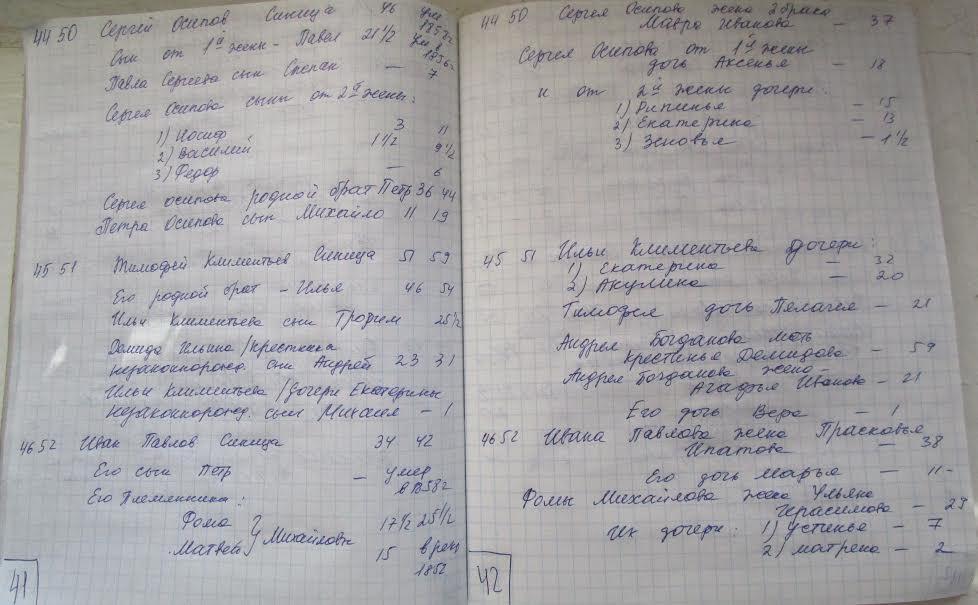 44 50 Сергей Осипов Синица 46 ум. 1858г
Сын от 1й жены - Павел 21 1/2 ум в 1856г
Павла Сергеева сын Степан — 7
Сергея Осипова сыны от 2й жены:
1) Иосиф 3 11
2) Василий 1 1/2 9 1/2
3) Федор — 6
Сергея Осипова родной брат Петр 36 44
Петра Осипова сын Михайло 11 19
45 51 Тимофей Климентьев Синица 51 59
Его родной брат - Илья 46 54
Ильи Климентьева сын Трофим 25 1/2
Демида Ильина /крестника
незаконнорожд. сын Андрей 23 31
Ильи Климентьева /дочери Екатерины
Незаконнорожд. сын Микася — 1
46 52 Иван Павлов Синица 34 42
Его сын Петр — умер в 1858г
Его Племянники:
Фома } Михайловы 17 1/2 25 1/2
Матвей 15 в рекр 1852
41
44 50 Сергея Осипова жена 2 брака
Мавра Иванова — 37
Сергея Осипова от 1й жены
дочь Аксенья — 18
и от 2й жены дочери:
1) Рипинья — 15
2) Екатерина — 13
3) Зеновья — 1 1/2
45 51 Ильи Климентьева дочери:
1) Екатерина — 32
2) Акулина — 20
Тимофея дочь Пелагея — 21
Андрея Богданова мать
Крестинья Демидова — 59
Андрея Богданова жена -
Агафья Иванова — 21
Его дочь Вера — 1
46 52 Ивана Павлова жена Прасковья
Ипатова — 38
Его дочь Марья — 11 -
Фомы Михайлова жена Ульяна
Герасимова — 29
Их дочери: 1) Устинья — 7
2) Матрена — 2
42